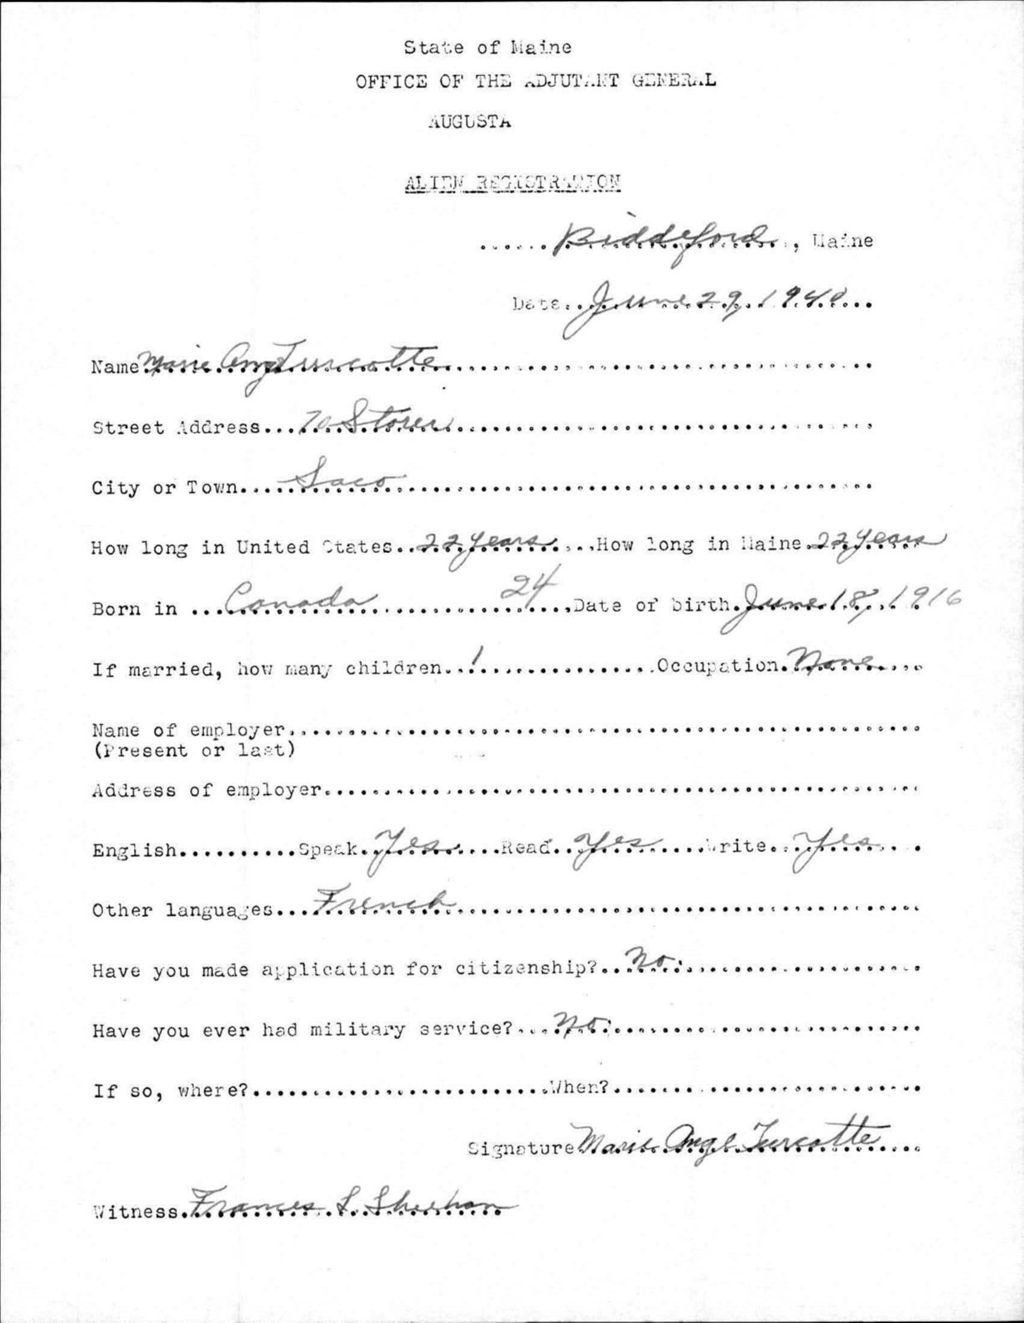 State of Maine
OFFICE OF THE ADJUTANT GENERAL
AUGUSTA
ALIEN REGISTRATION
......Biddeford..., Maine
Date..June 29, 1940...
Name Marie Ange Turcotte
Street Address...70 Storer
City or Town....Saco
How long in United States..22 years....How long in Maine.22 years
Born in ...Canada 24 ,Date of birth.June 18, 1916
If married, how many children..1..............Occupation.None....
Name of employer
(Present or last)
Address of employer
English..........Speak.Yes....Read..Yes.....Write..Yes...
Other languages...French
Have you made application for citizenship?...No.
Have you ever had military service?....No.
If so, where?.........................When?
Signature Marie Ange Turcotte
Witness.Frances L. Sheehan